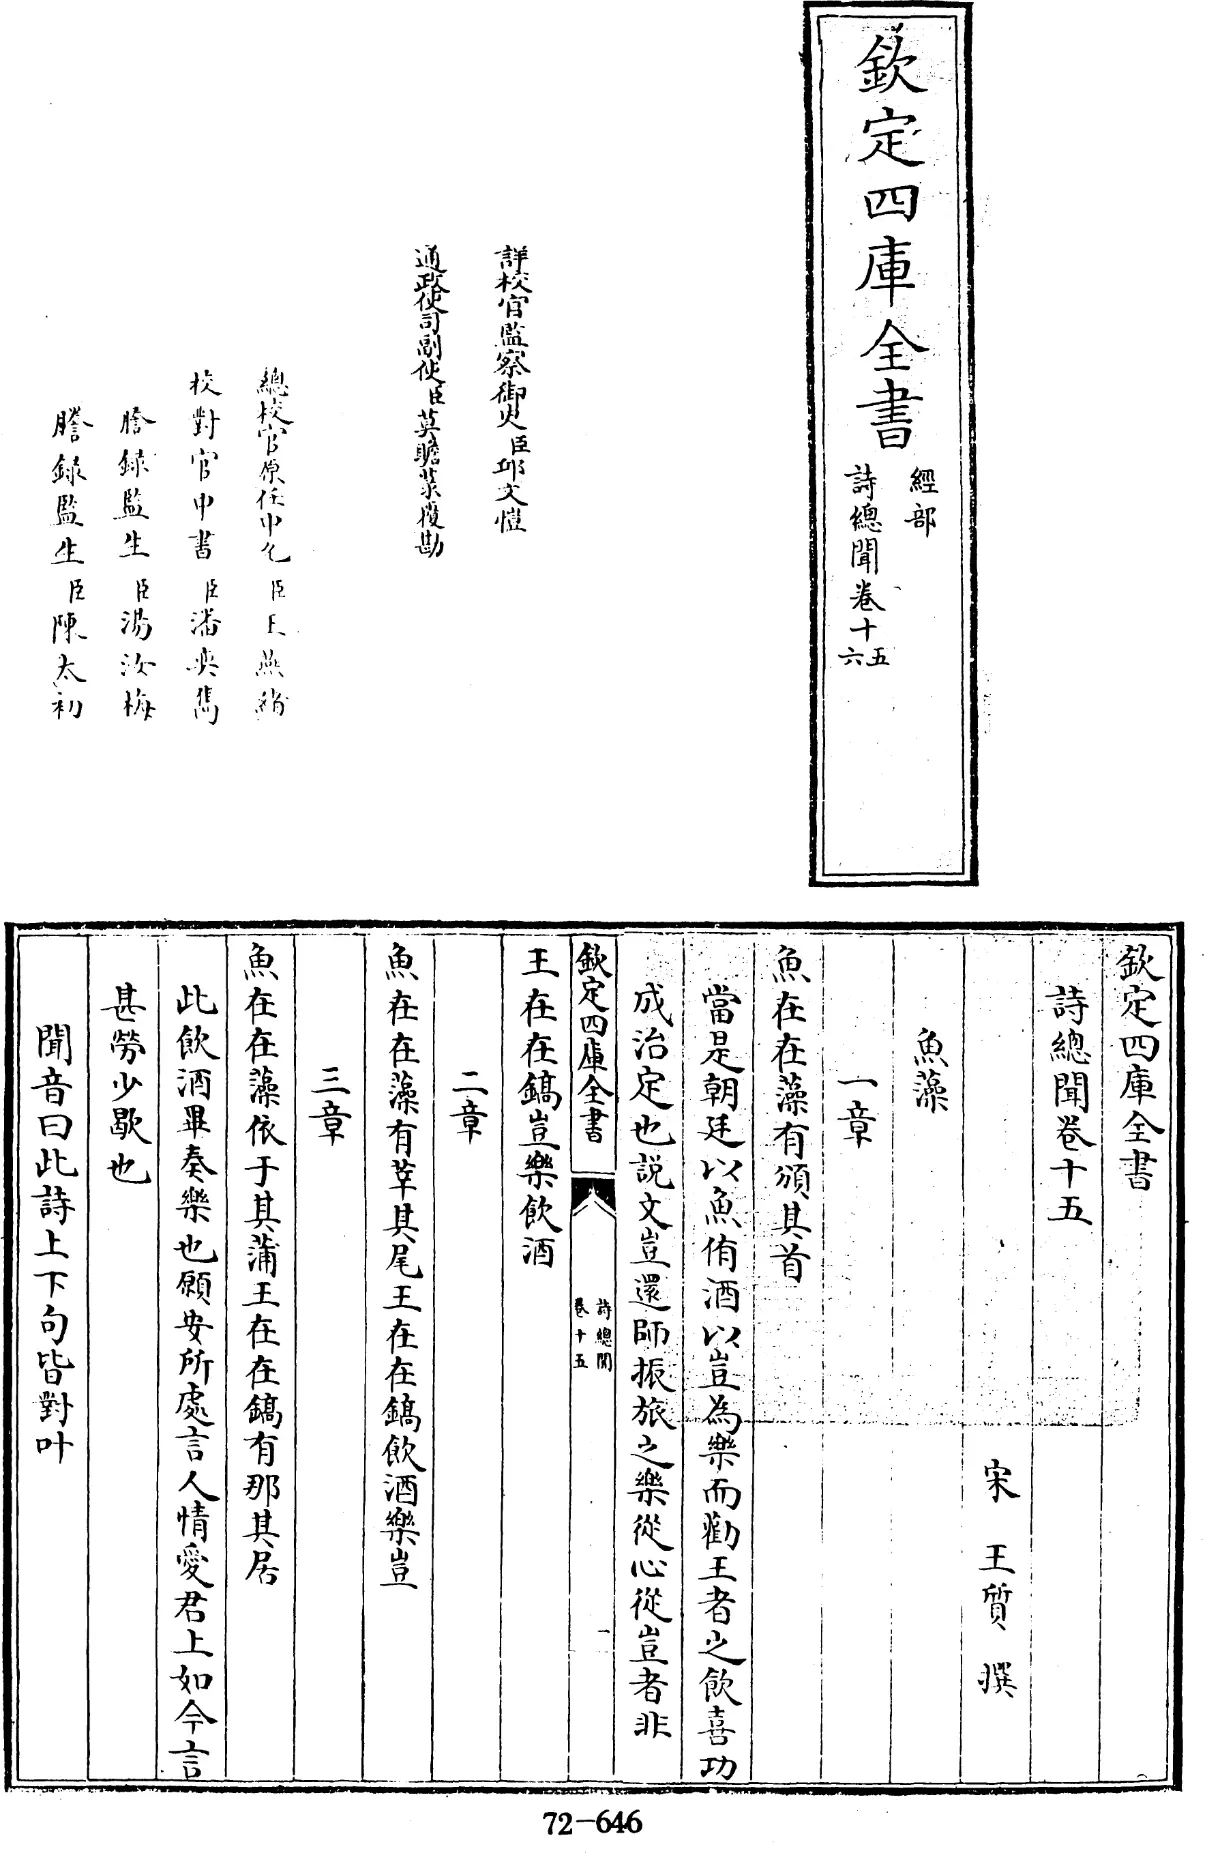 欽定四庫全書
經部
詩總聞卷十五
六
詳校官監察御史臣邱文愷
通政使司副使臣莫瞻菉覆勘
總校官原任中允臣王燕緒
校對官中書臣潘奕雋
謄錄監生臣湯汝梅
謄錄監生臣陳太初
欽定四庫全書
詩總聞卷十五
宋 王質 撰
魚藻
一章
魚在在藻有頒其首
當是朝廷以魚侑酒以豈為樂而勸王者之飲喜功
成治定也説文豈還師振旅之樂從心從豈者非
欽定四庫全書
詩總聞
卷十五
一
王在在鎬豈樂飲酒
二章
魚在在藻有莘其尾王在在鎬飲酒樂豈
三章
魚在在藻依于其蒲王在在鎬有那其居
此飲酒畢奏樂也願安所處言人情愛君上如今言
甚勞少歇也
聞音曰此詩上下句皆對叶
72-646